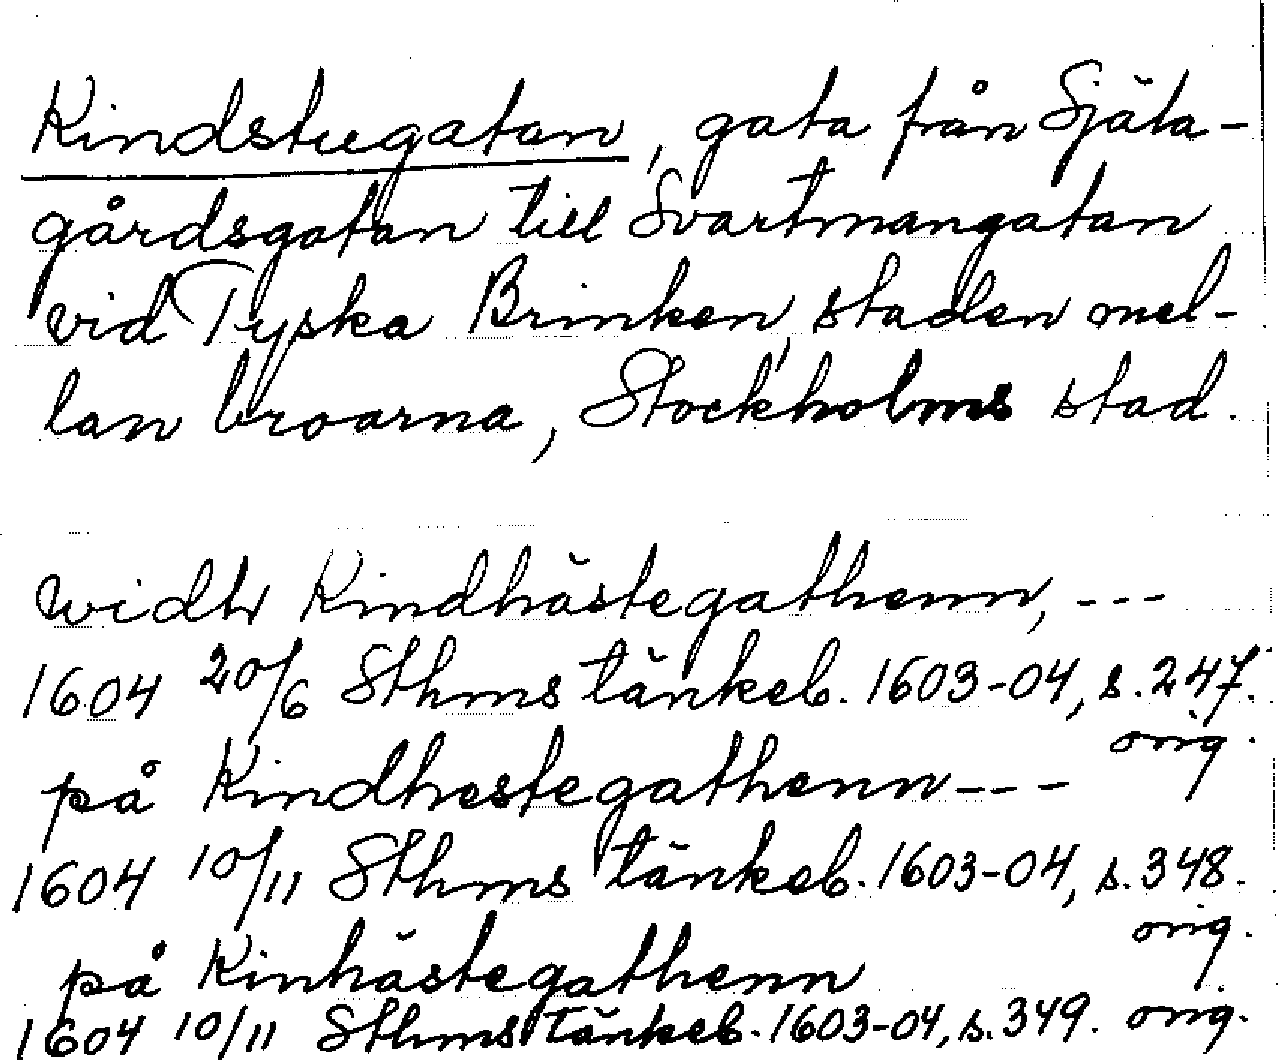 Kindstugatan, gata från Själa-
gårdsgatan till Svartmangatan
vid Tyska Brinken, staden mel-
lan broarna, Stockholms stad.
widh Kindhästegathenn, ---
1604 20/6 Sthms tänkeb. 1603-04, s. 247.
orig.
på Kindhestegathenn ---
1604 10/11 Sthms tänkeb. 1603-04, s. 348.
orig.
på Kinhästegathenn
1604 10/11 Sthms tänkeb. 1603-04, s. 349. orig.